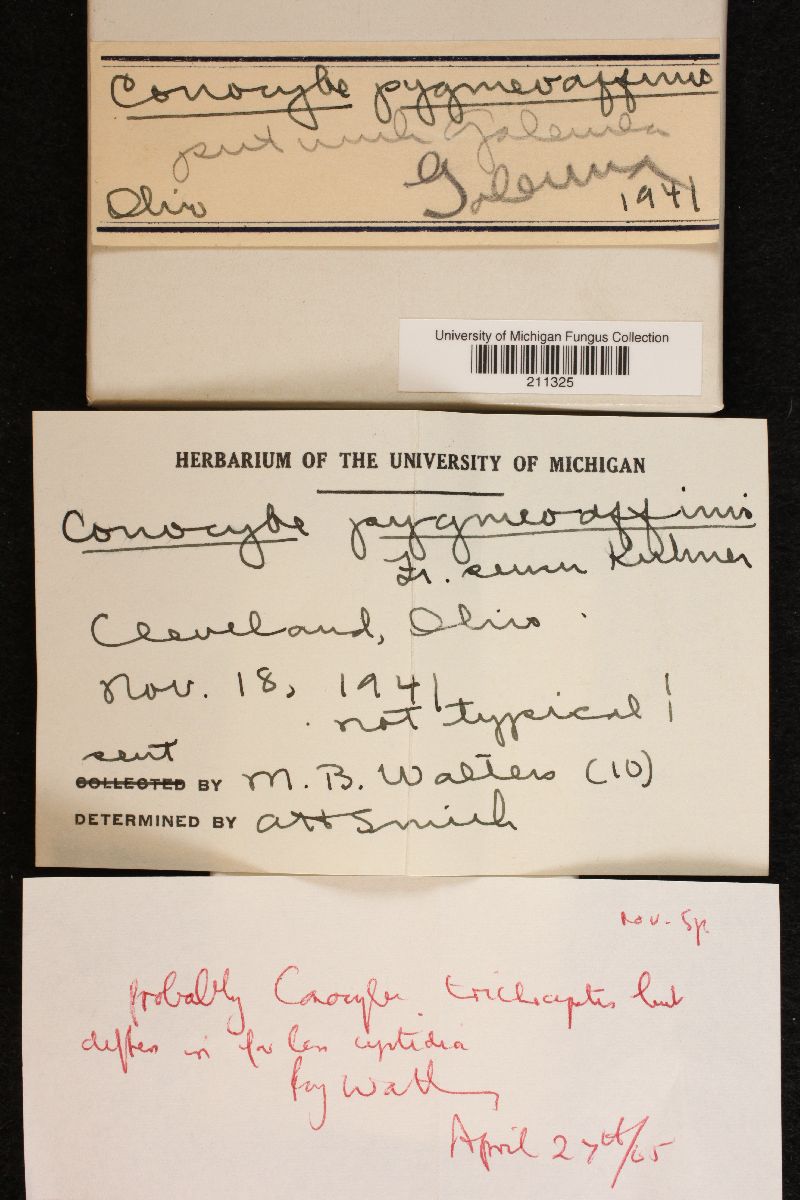 Conocybe pygmeoaffinis
put with Galerina
Galerina
Ohio 1941
University of Michigan Fungus Collection
211325
HERBARIUM OF THE UNIVERSITY OF MICHIGAN
Conocybe pygmeoaffinis
Fr. sensu Kuhner
Cleveland, Ohio.
Nov. 18, 1941
not typical!
sent
COLLECTED BY M. B. Walters (10)
DETERMINED BY AH Smith
nov. sp.
probably Conocybe but
differs in far less cystidia
Roy Watling
April 27th/65